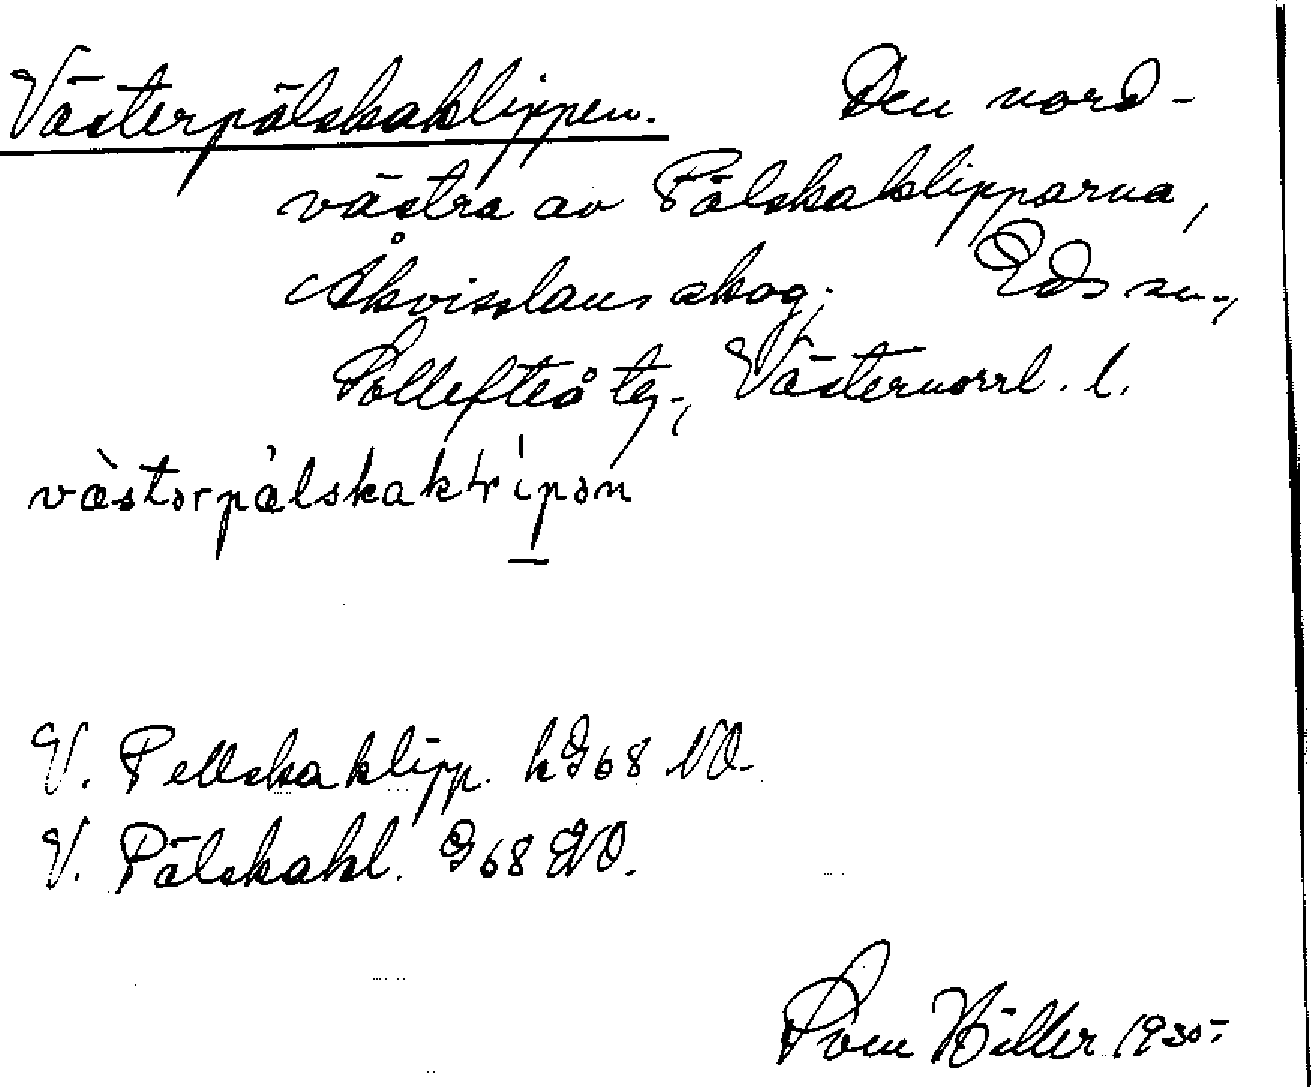 Västerpälskaklippen. Den nord-
västra av Pälskaklipparna,
Åkvisslans skog; Eds sn.,
Sollefteå tg., Västernorrl. l.
västərpälskak ipən
V. Pellskaklipp. k 968 NO.
V. Pälskakl. 968 NO.
1930.